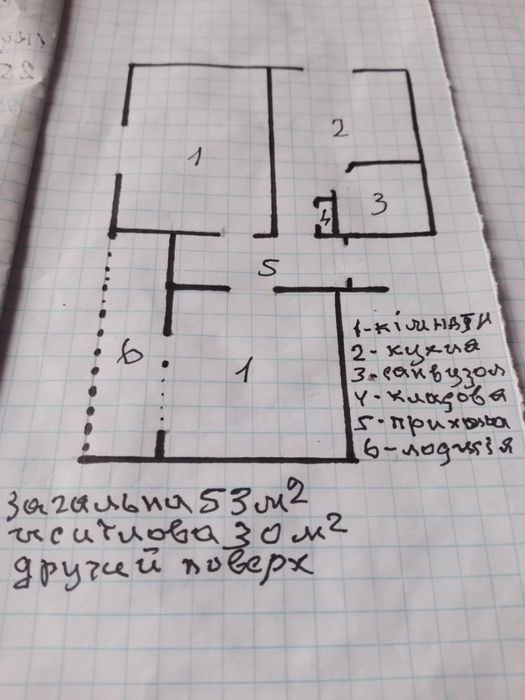 1
2
3
4
5
6
1
1-кімнати
2-кухня
3-санвузол
4-кладова
5-прихожа
6-лоджія
загальна 53 м²
житлова 30 м²
другий поверх